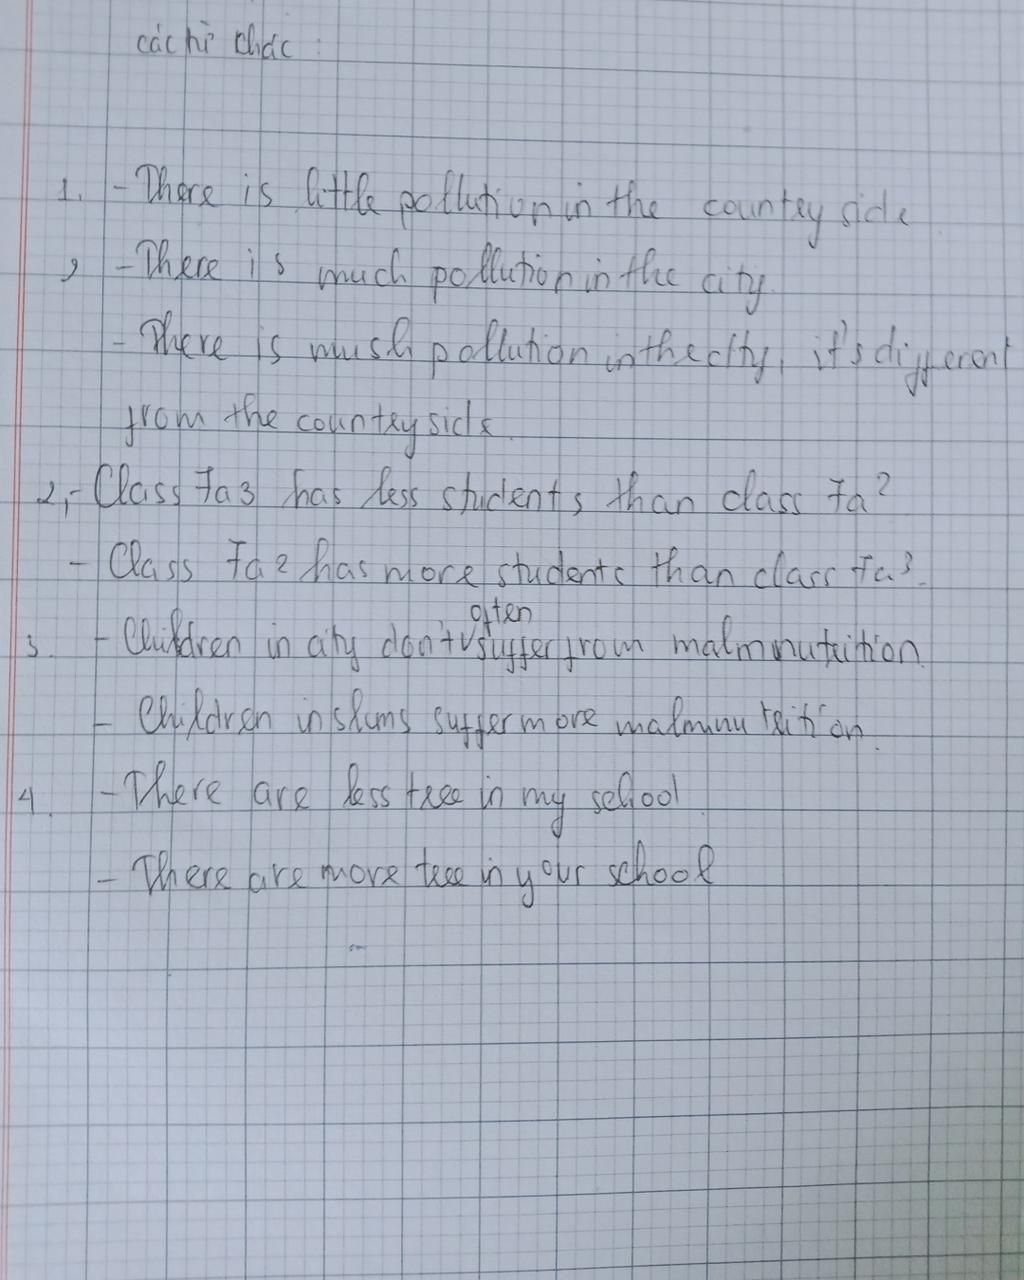 các hi
1. - There is little pollution in the country side
- There is much pollution in the city.
- There is mush pollution in the city, it's different
from the country side.
2, - Class 7a3 has less students than class 7a2
- Class 7a2 has more students than class 7a3.
often
3. - Children in city don't v suffer from malmnutrition.
- Children in slums suffer more malmnutrition.
4. - There are less tree in my school.
- There are more tree in your school